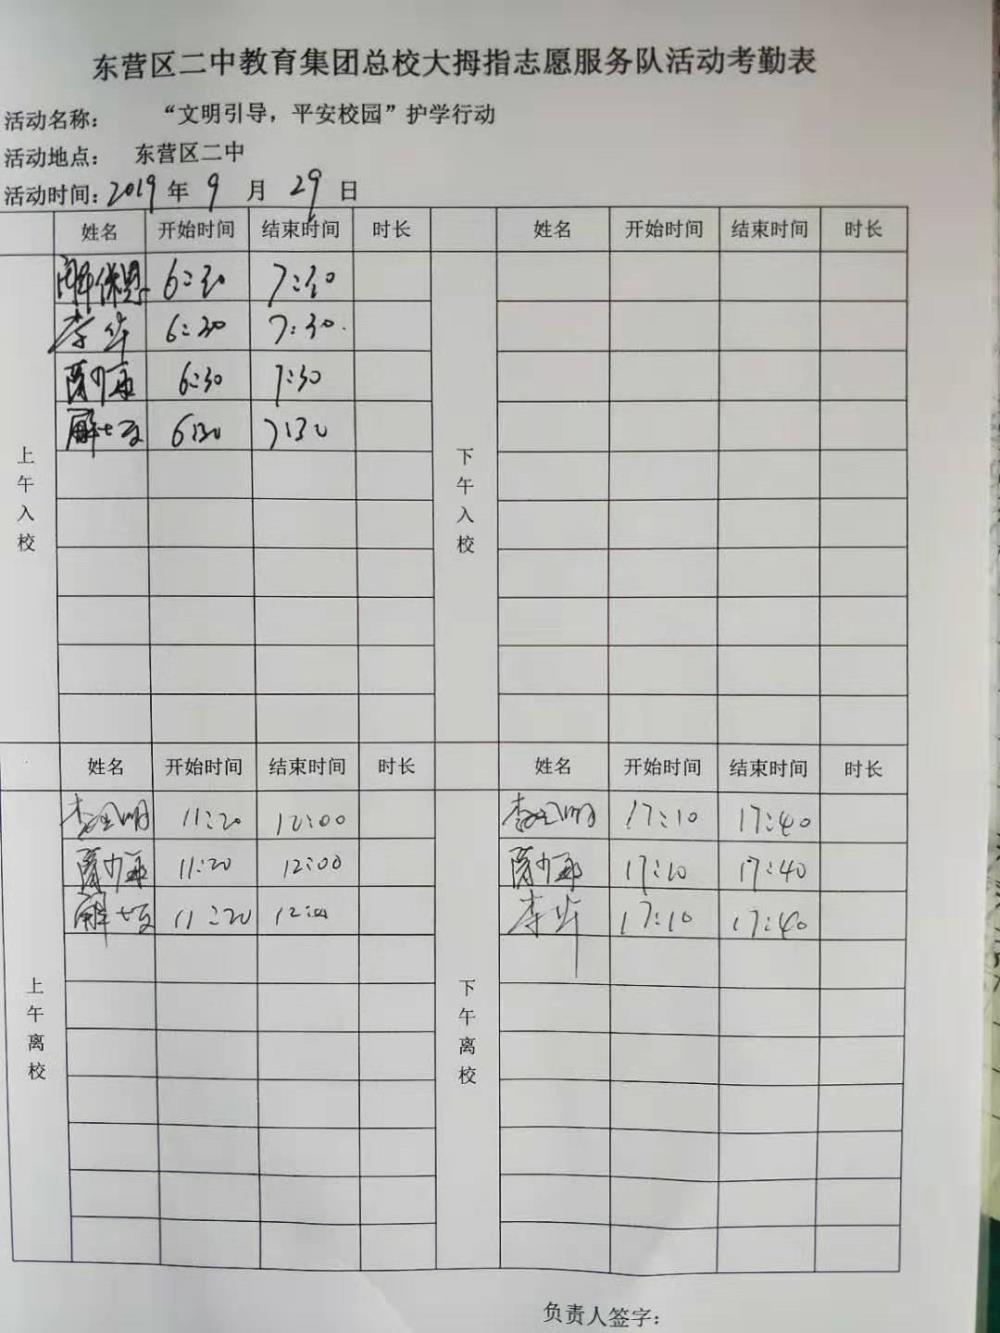 东营区二中教育集团总校大拇指志愿服务队活动考勤表
活动名称： “文明引导，平安校园”护学行动
活动地点： 东营区二中
活动时间：2019年9月29日
姓名 开始时间 结束时间 时长 姓名 开始时间 结束时间 时长
上午入校
6:30 7:30
李华 6:30 7:30
6:30 7:30
6:30 7:30
下午入校
姓名 开始时间 结束时间 时长 姓名 开始时间 结束时间 时长
上午离校
11:20 12:00
11:20 12:00
11:20 12:00
下午离校
17:10 17:40
17:10 17:40
李华 17:10 17:40
负责人签字：